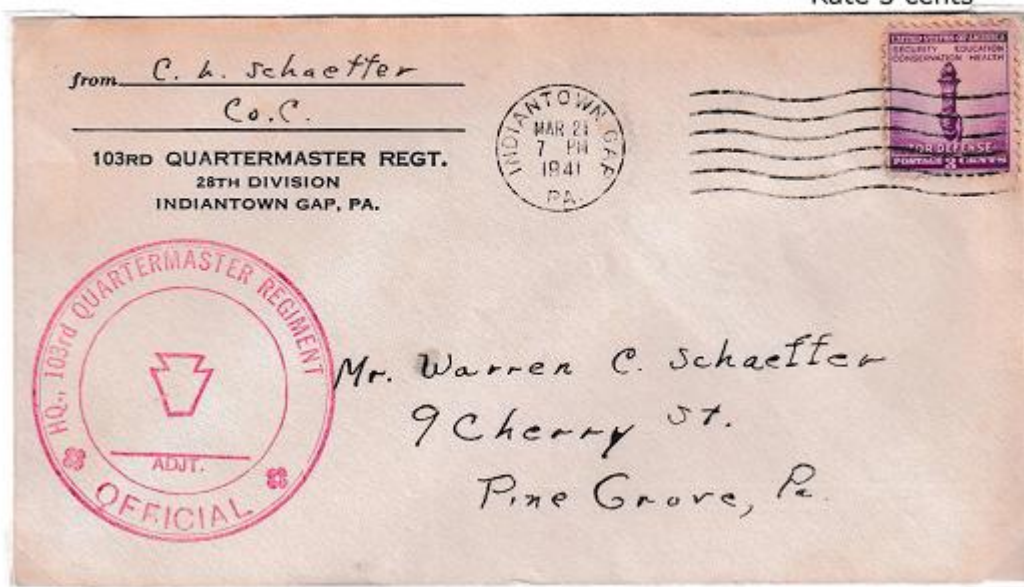 Rate 3 cents
from C. L. Schaeffer
Co. C.
103RD QUARTERMASTER REGT.
28TH DIVISION
INDIANTOWN GAP, PA.
INDIANTOWN GAP
MAR 21
7 PM
1941
PA.
UNITED STATES OF AMERICA
SECURITY EDUCATION
CONSERVATION HEALTH
FOR DEFENSE
POSTAGE 3 CENTS
HQ., 103rd QUARTERMASTER REGIMENT
ADJT.
OFFICIAL
Mr. Warren C. Schaeffer
9 Cherry St.
Pine Grove, Pa.